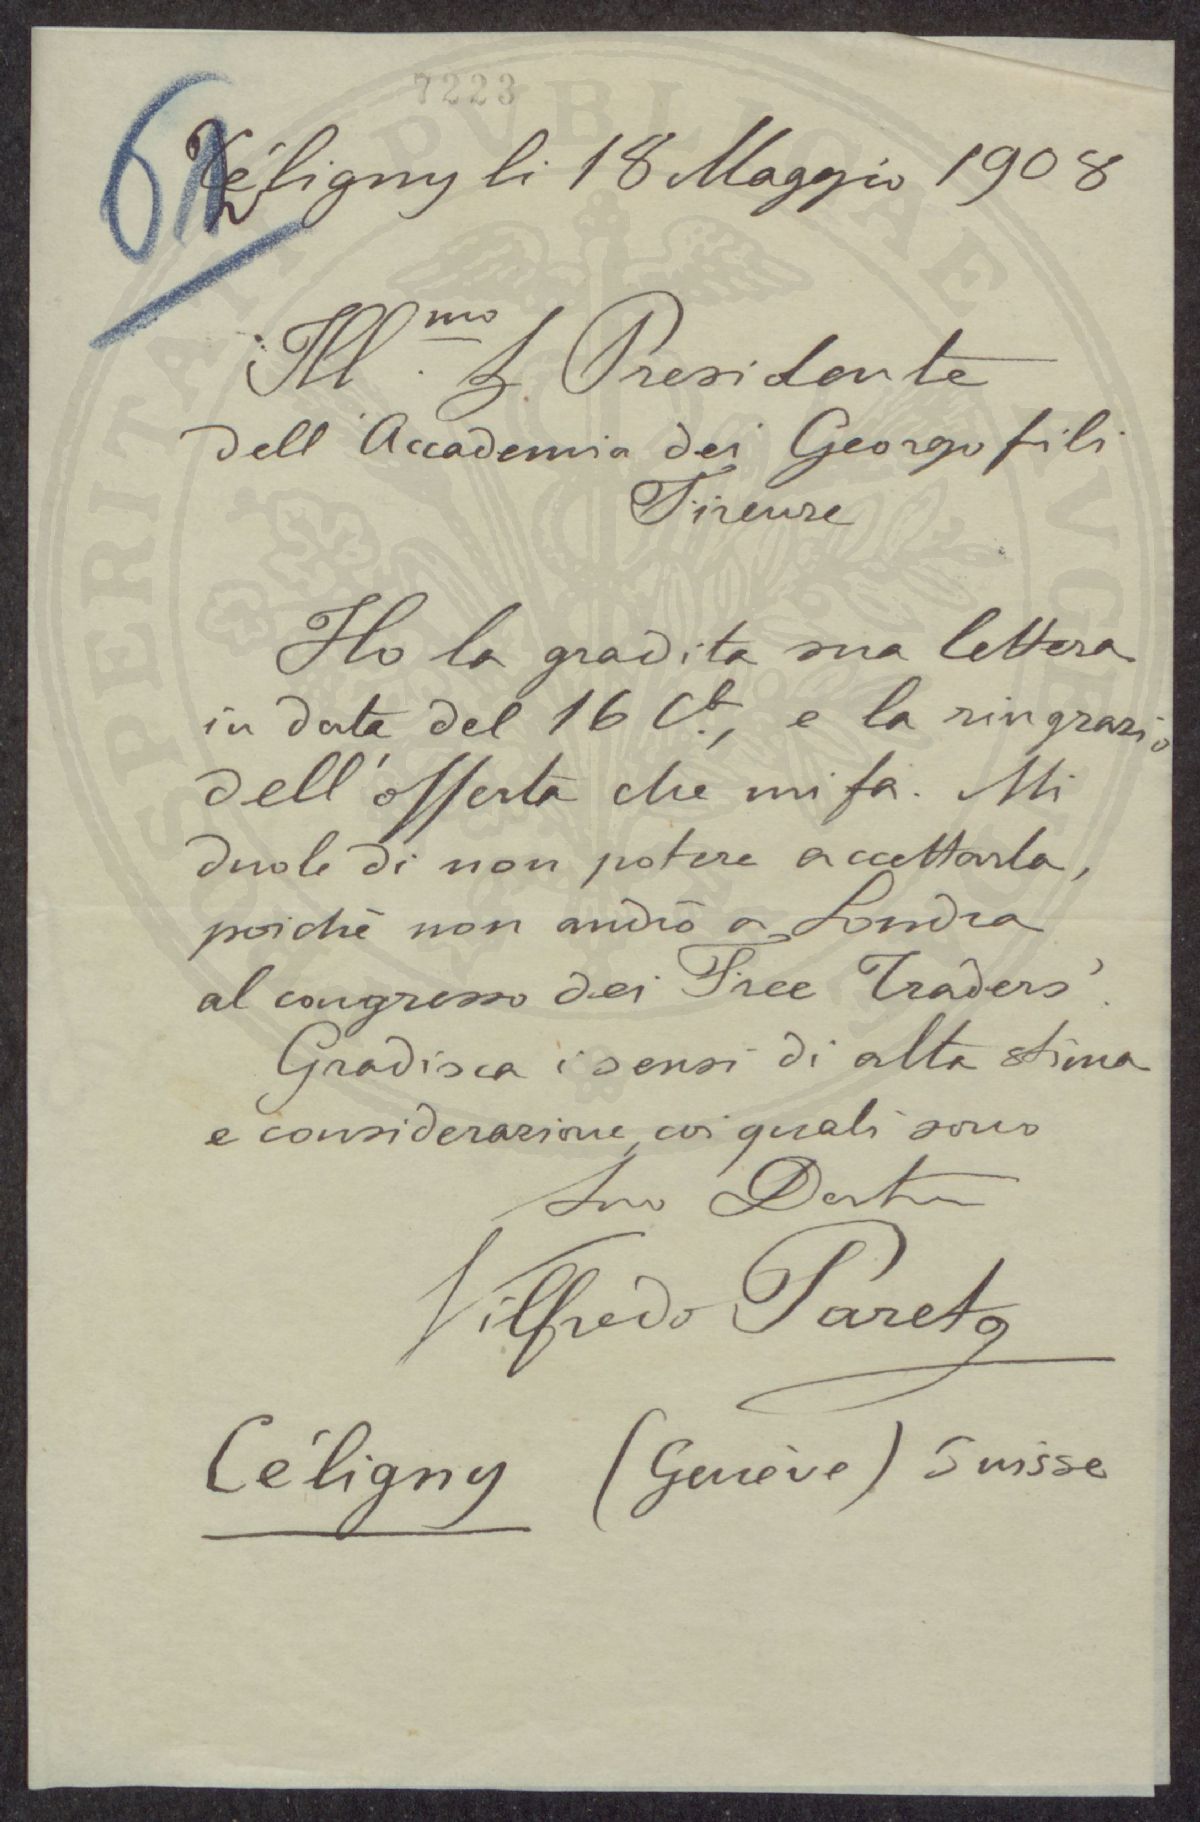 7223
61
Céligny li 18 Maggio 1908
Ill.mo S. Presidente
dell'Accademia dei Georgofili
Firenze
Ho la gradita sua lettera
in data del 16 Ct., e la ringrazio
dell'offerta che mi fa. Mi
duole di non potere accettarla,
poichè non andrò a Londra
al congresso dei Free Traders'.
Gradisca i sensi di alta stima
e considerazione, coi quali sono
Suo
Vilfredo Pareto
Céligny (Genève) Suisse
PROSPERITATI PVBLICAE AVGENDAE